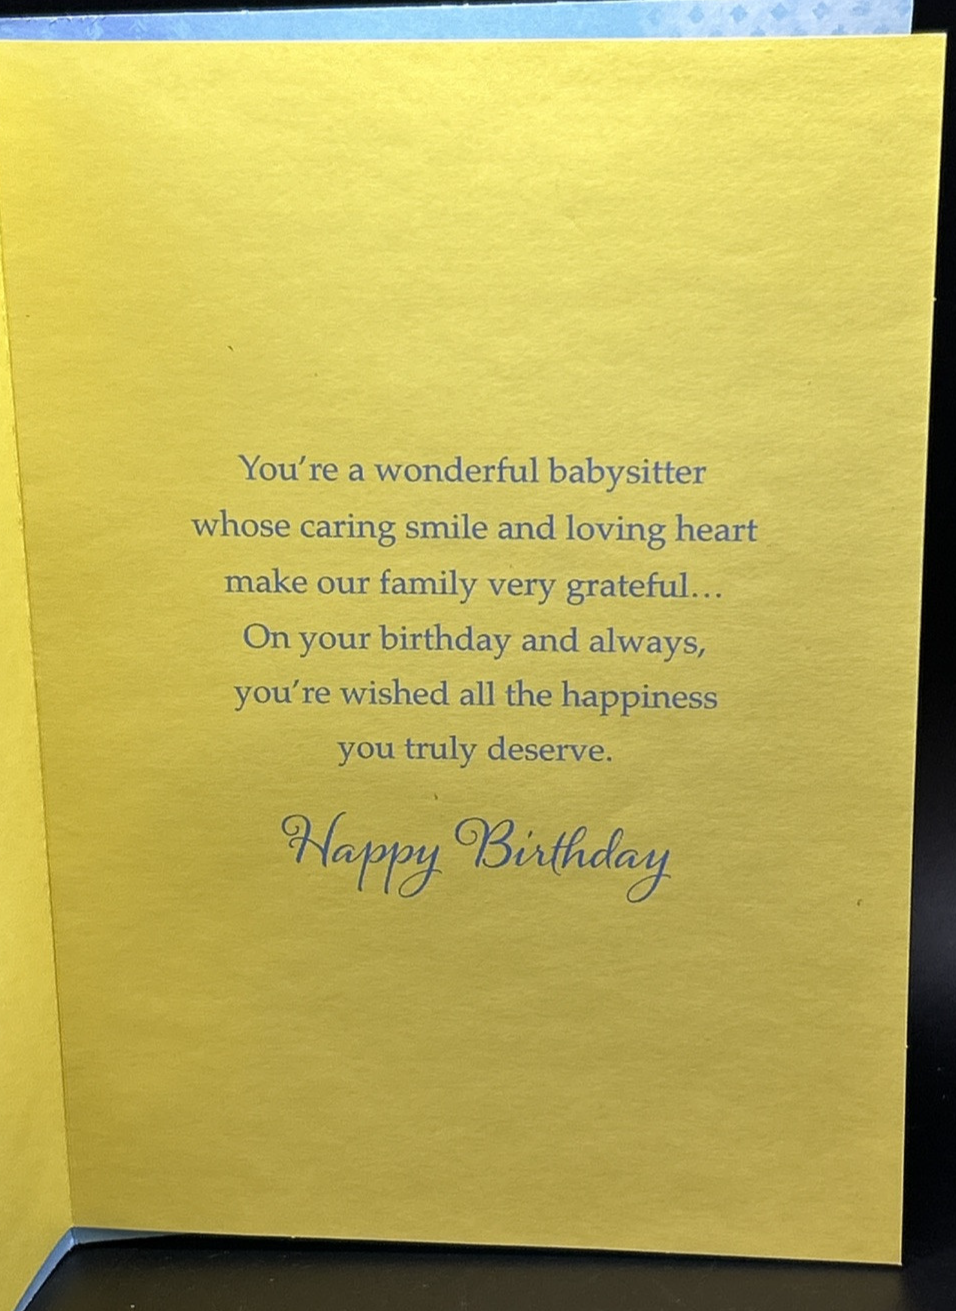 You're a wonderful babysitter
whose caring smile and loving heart
make our family very grateful...
On your birthday and always,
you're wished all the happiness
you truly deserve.
Happy Birthday